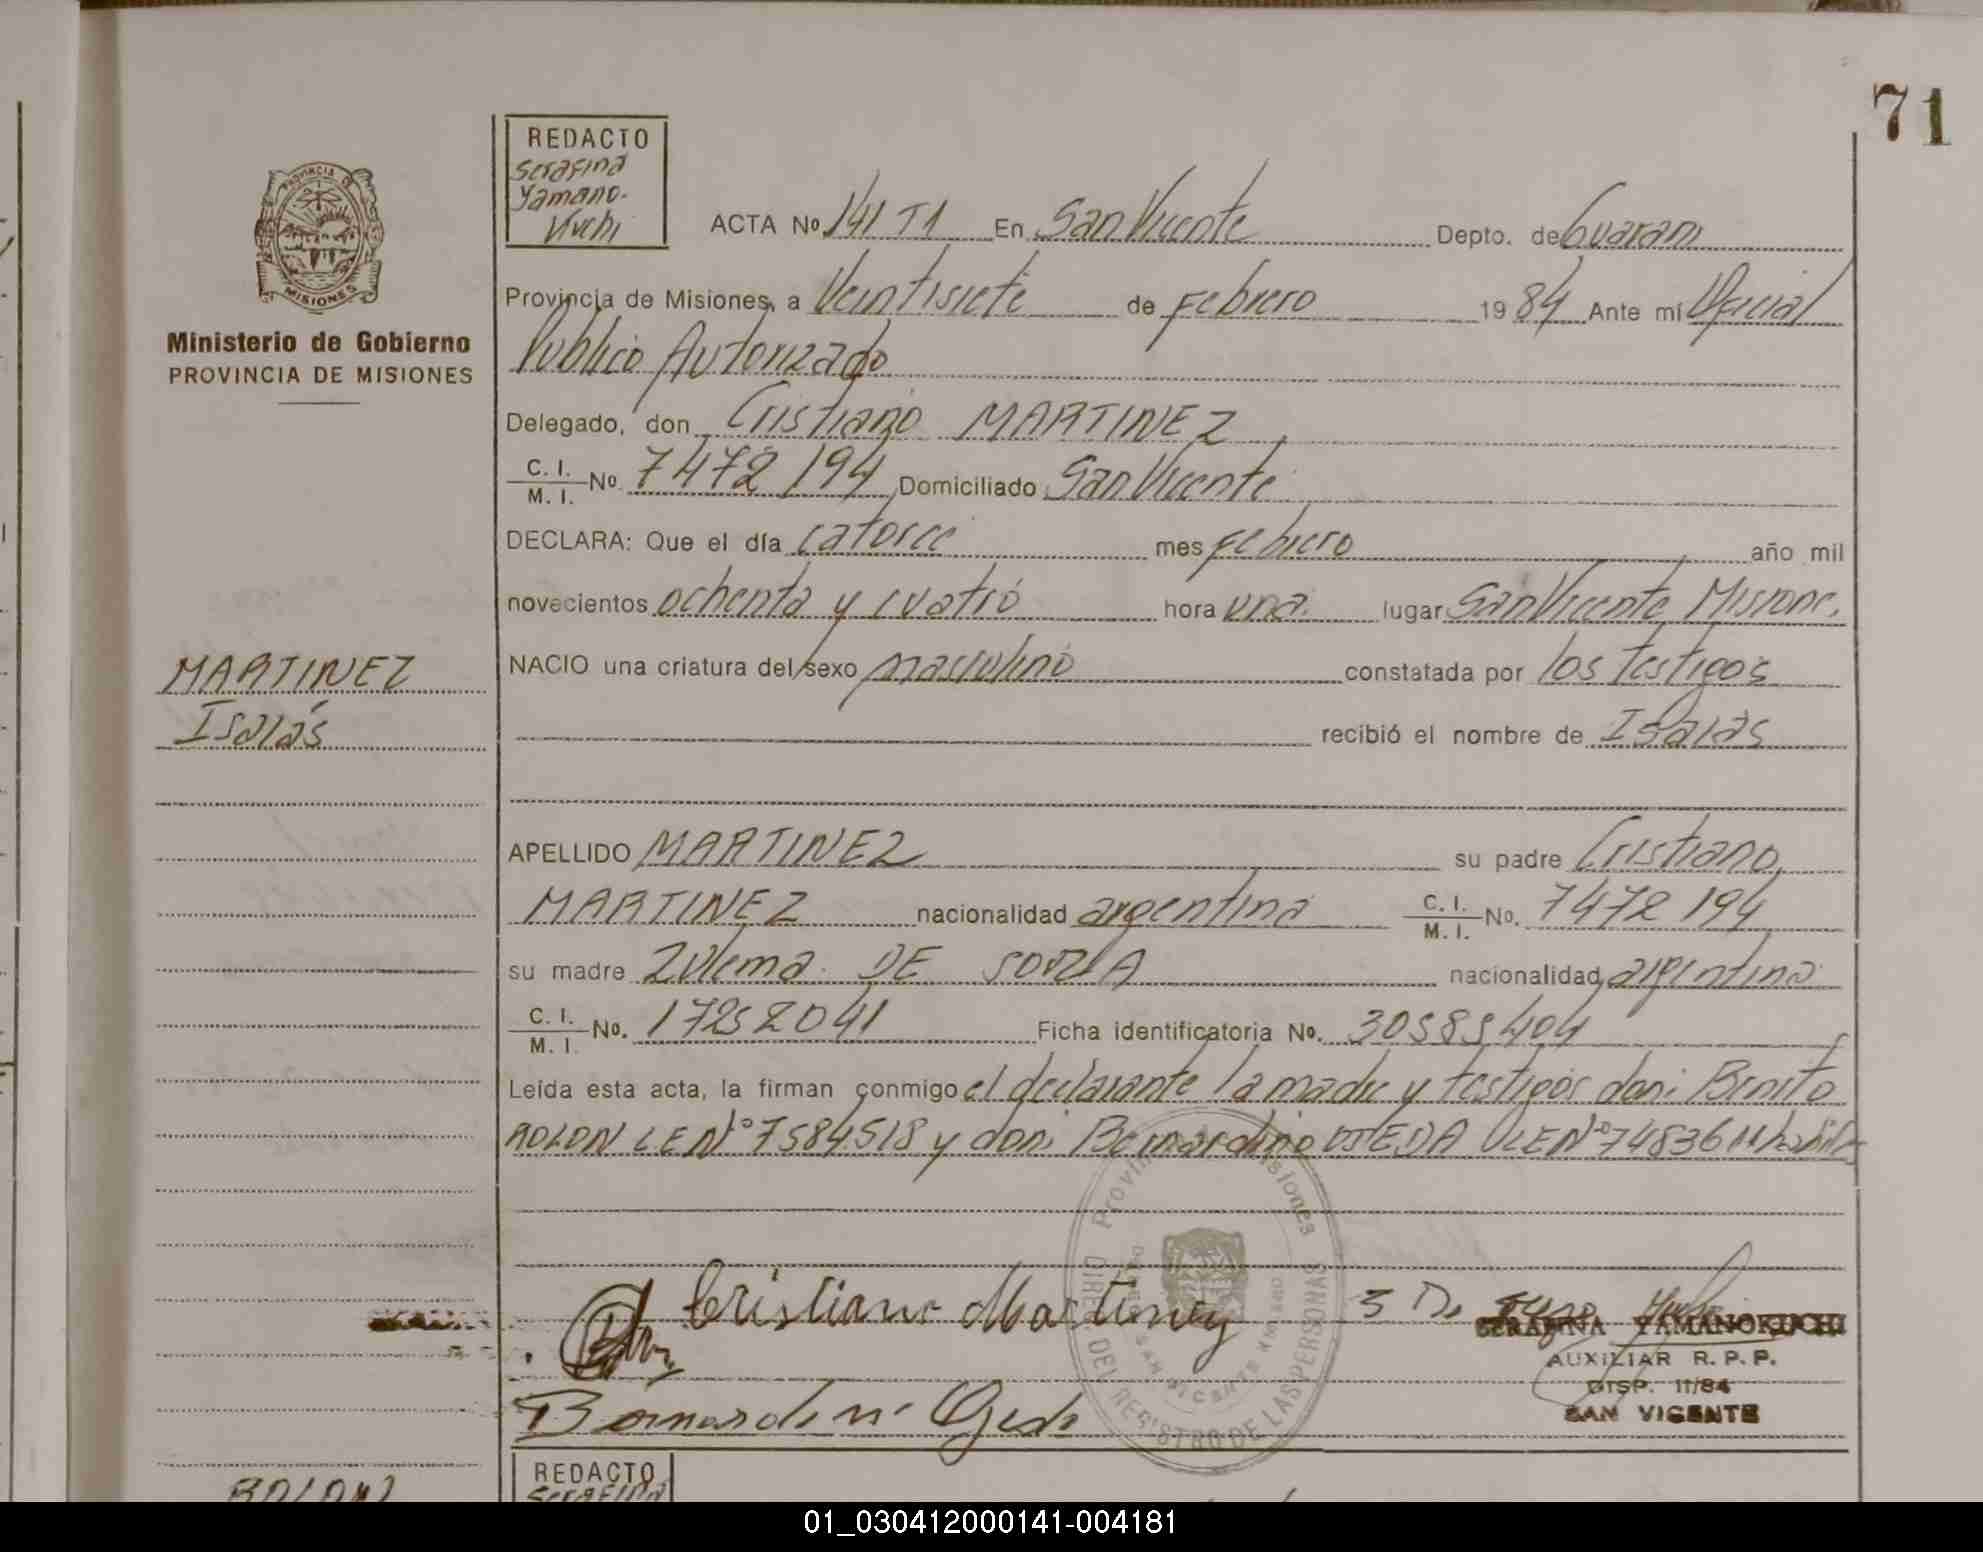 71
REDACTO
Serafina
Yamano-
Kuchi
PROVINCIA DE
MISIONES
Ministerio de Gobierno
PROVINCIA DE MISIONES
ACTA No 141 T1 En San Vicente Depto. de Guarani
Provincia de Misiones, a Veintisiete de Febrero 1984 Ante mi Oficial
Publico Autorizado
Delegado, don Cristiano MARTINEZ
C. I.
M. I. No. 7472194 Domiciliado San Vicente
DECLARA: Que el día catorce mes febrero año mil
novecientos ochenta y cuatro hora una lugar San Vicente Misione.
NACIO una criatura del sexo masculino constatada por los testigos
MARTINEZ
Isaías
recibió el nombre de Isaías
APELLIDO MARTINEZ su padre Cristiano
MARTINEZ nacionalidad argentina C. I.
M. I. No. 7472194
su madre Zulema DE SOUZA nacionalidad argentina
C. I.
M. I. No. 17252041 Ficha identificatoria No. 30585404
Leída esta acta, la firman conmigo el declarante la madre y testigos don: Benito
ROLON LE Nº 7584518 y don: Bernardino OJEDA LE Nº 748361
Cristiano Martinez
Bernardino Ojeda
Provincia de Misiones
DIREC. DEL REGISTRO DE LAS PERSONAS
SAN VICENTE
SERAFINA YAMANOKUCHI
AUXILIAR R. P. P.
DISP. 11/84
SAN VICENTE
REDACTO
Serafina
ROLON
01_030412000141-004181